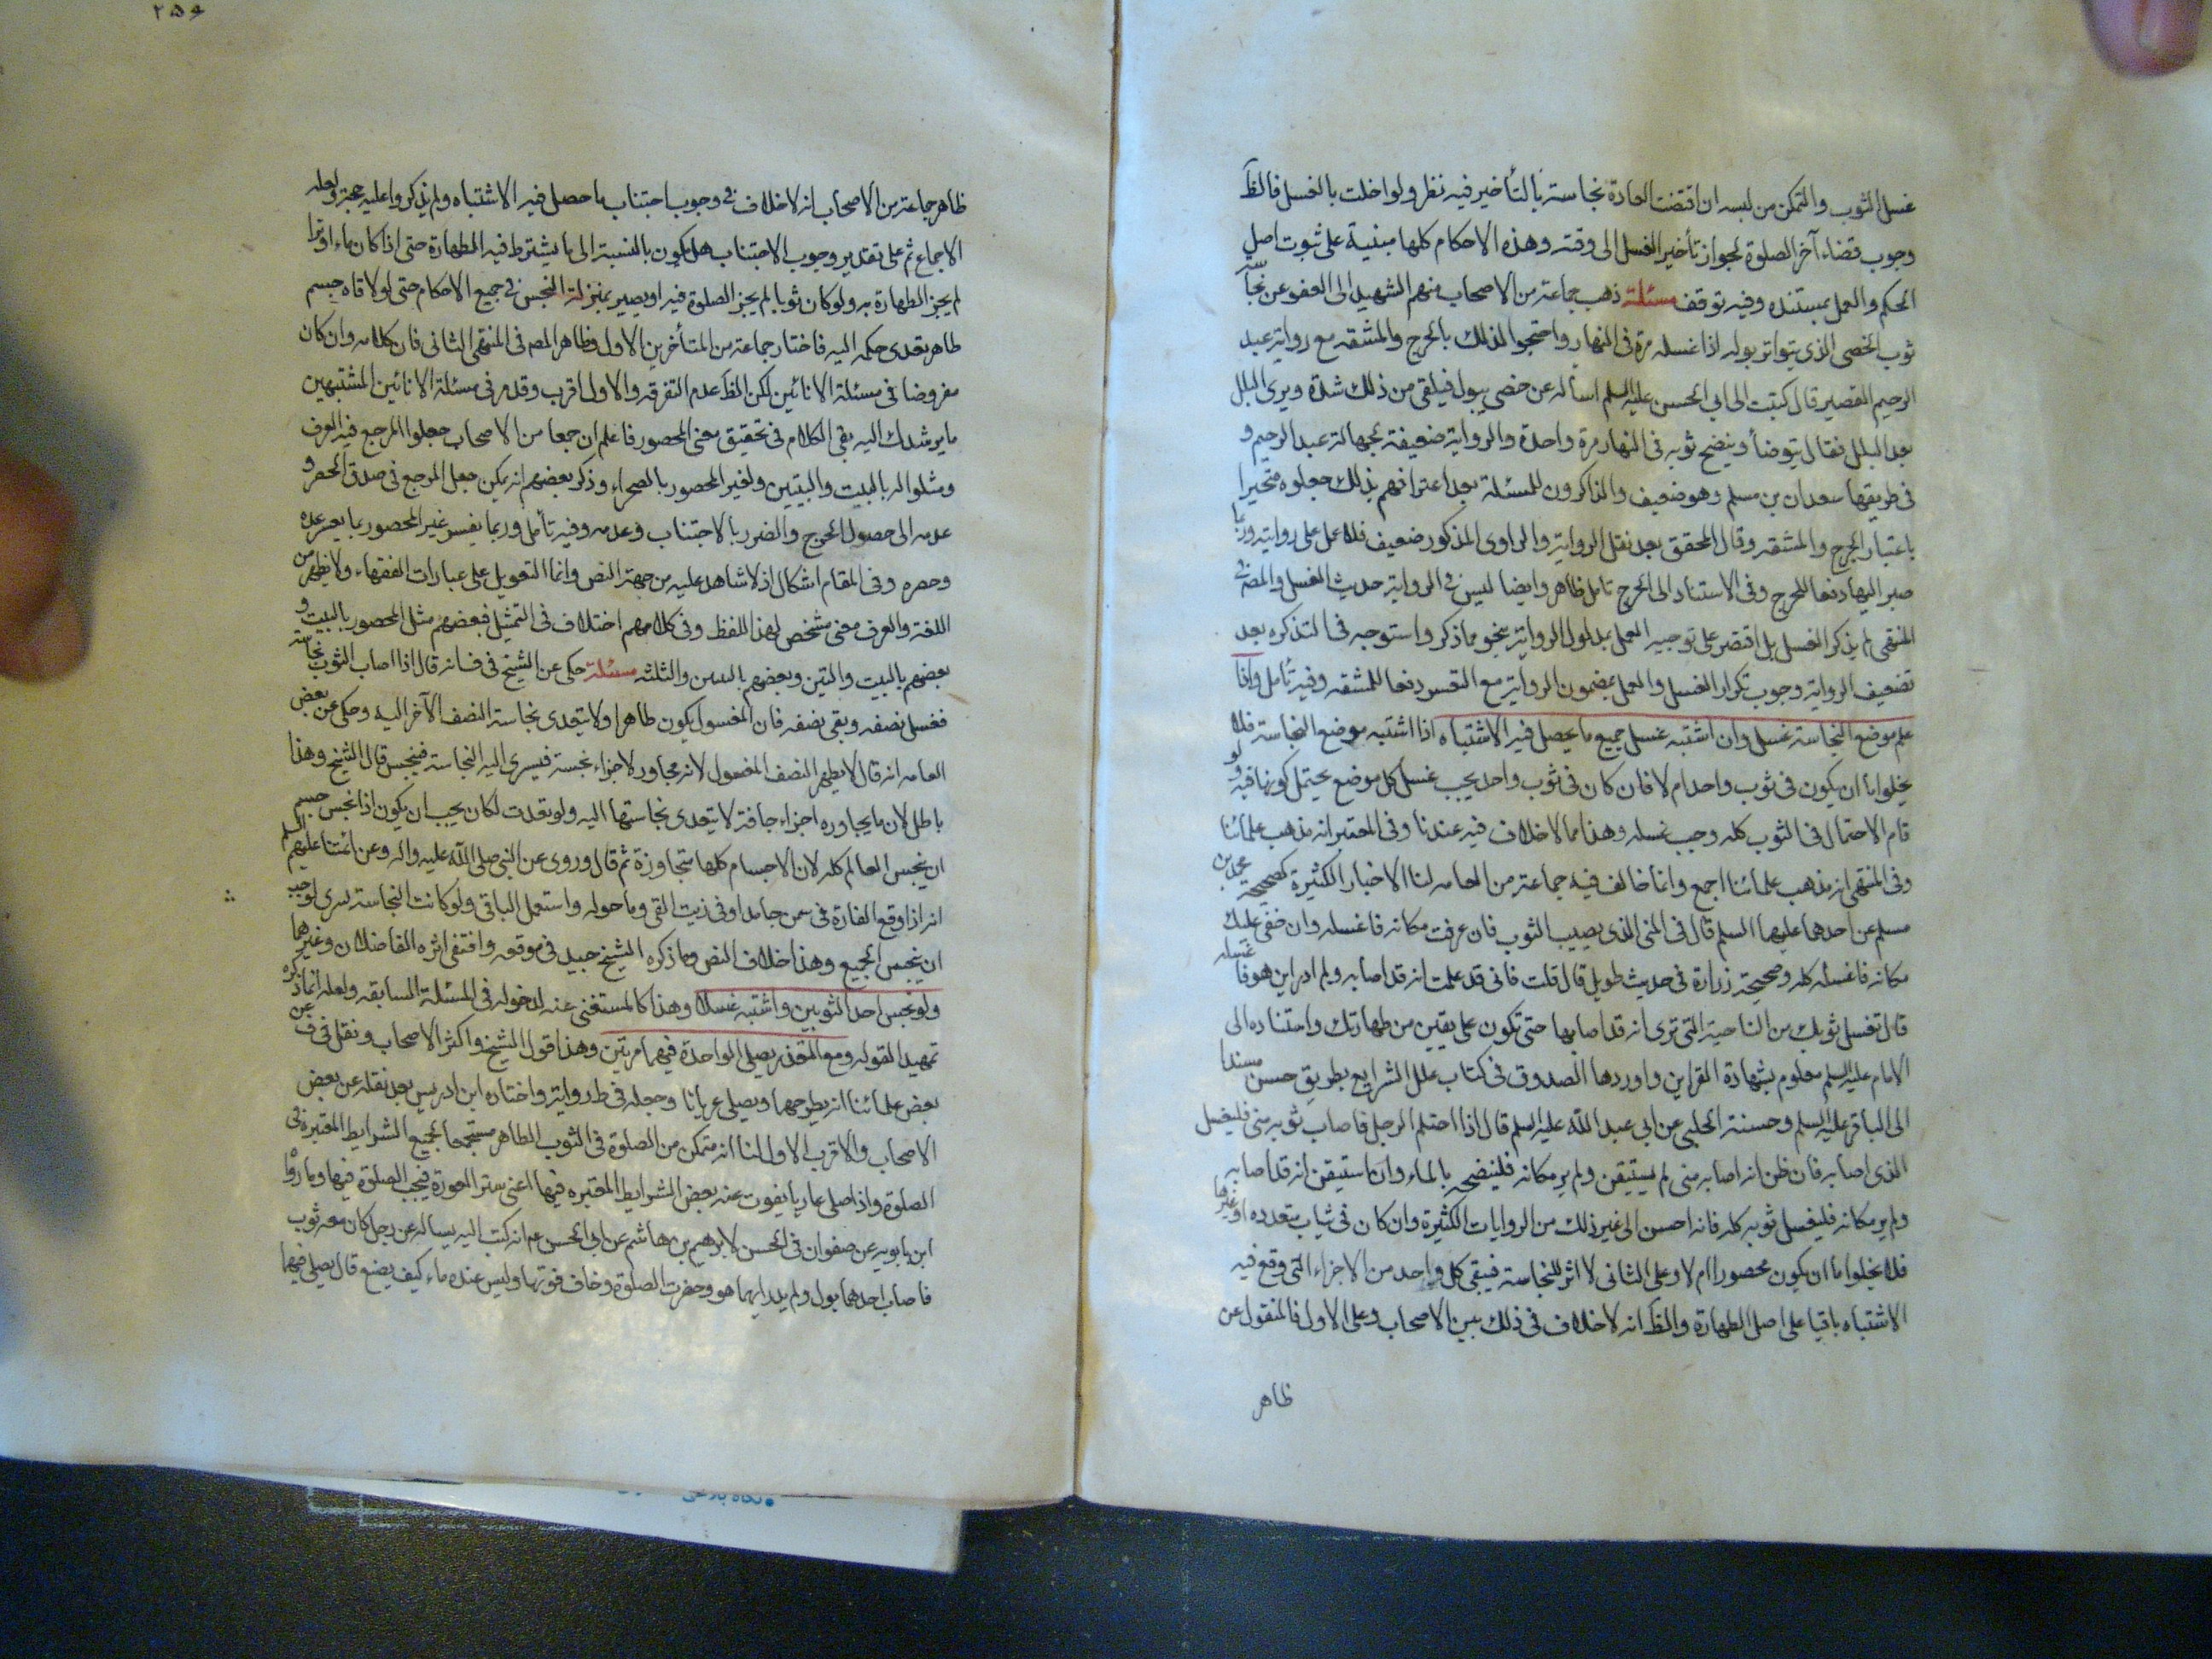 غسل الثوب والتمكن من لبسه ان اقتضت العادة نجاسته بالتأخير فيه نظر ولو اخلت بالغسل فالظ
وجوب قضاء آخر الصلوة لجواز تأخير الغسل الى وقته وهذه الاحكام كلها مبنية على ثبوت اصل
الحكم والعمل بمستنده وفيه توقف مسئلة ذهب جماعة من الاصحاب منهم الشهيد الى العفو عن نجاسة
ثوب الخصى الذي يتواتر بوله اذا غسله مرة فى النهار واحتجوا لذلك بالحرج والمشقه مع رواية عبد
الرحيم القصير قال كتبت الى ابي الحسن عليه السلم اسأله عن خصى يبول فيلقى من ذلك شدة ويرى البلل
بعد البلل فقال يتوضأ وينضح ثوبه فى النهار مرة واحدة والرواية ضعيفة بجهالة عبد الرحيم و
فى طريقها سعدان بن مسلم وهو ضعيف والذاكرون للمسئلة بعد اعترافهم بذلك جعلوه متحيرا
باعتبار الحرج والمشقه وقال المحقق بعد نقل الرواية والراوى المذكور ضعيف فلا عمل على روايته وربما
صير اليها دفعا للحرج وفى الاستناد الى الحرج تامل ظاهر وايضا ليس في الرواية حديث الغسل والمصه في
المنتهى لم يذكر الغسل بل اقتصر على توجيه العمل بمدلول الرواية بنحو ما ذكر واستوجه فى التذكره بعد
تضعيف الرواية وجوب تكرار الغسل والعمل بمضمون الرواية مع التعسر دفعا للمشقه وفيه تأمل واذا
علم موضع النجاسة غسل وان اشتبه غسل جميع ما يحصل فيه الاشتباه اذا اشتبه موضع النجاسة فلا
يخلوا اما ان يكون فى ثوب واحد ام لا فان كان فى ثوب واحد يجب غسل كل موضع يحتمل كونها فيه ولو
قام الاحتمال فى الثوب كله وجب غسله وهذا مما لا خلاف فيه عندنا وفى المعتبر انه مذهب علمائنا
وفى المنتهى انه مذهب علمائنا اجمع وانما خالف فيه جماعة من العامه لنا الاخبار الكثيرة كصحيحة محمد بن
مسلم عن احدهما عليهما السلم قال فى المنى الذى يصيب الثوب فان عرفت مكانه فاغسله وان خفى عليك
مكانه فاغسله كله وصحيحة زرارة فى حديث طويل قال قلت فانى قد علمت انه قد اصابه ولم ادر اين هو فاغسله
قال تغسل ثوبك من الناحية التى ترى انه قد اصابها حتى تكون على يقين من طهارتك واستناده الى
الامام عليه السلم معلوم بشهادة القراين واوردها الصدوق فى كتاب علل الشرايع بطريق حسن مسندا
الى الباقر عليه السلم وحسنة الحلبى عن ابى عبد الله عليه السلم قال اذا احتلم الرجل فاصاب ثوبه منى فليغسل
الذى اصابه فان ظن انه اصابه منى لم يستيقن ولم ير مكانه فلينضحه بالماء وان استيقن انه قد اصابه
ولم ير مكانه فليغسل ثوبه كله فانه احسن الى غير ذلك من الروايات الكثيرة وان كان فى ثياب متعدده او غيرها
فلا يخلوا اما ان يكون محصورا ام لا وعلى الثانى لا اثر للنجاسة فيبقى كل واحد من الاجزاء التى وقع فيه
الاشتباه باقيا على اصل الطهارة والظ انه لا خلاف فى ذلك بين الاصحاب وعلى الاول فالمنقول عن
ظاهر
۲۵۶
ظاهر جماعة من الاصحاب انه لا خلاف في وجوب اجتناب ما حصل فيه الاشتباه ولم يذكروا عليه حجة ولعله
الاجماع ثم على تقدير وجوب الاجتناب هل يكون بالنسبة الى ما يشترط فيه الطهارة حتى اذا كان ماء او ترابا
لم يجز الطهارة به ولو كان ثوبا لم يجز الصلوة فيه او يصير بمنزلة النجس في جميع الاحكام حتى لو لاقاه جسم
طاهر تعدى حكمه اليه فاختار جماعة من المتأخرين الاول وظاهر المصه فى المنتهى الثانى فان كلامه وان كان
مفروضا فى مسئلة الانائين لكن الظ عدم التفرقه والاول اقرب وقد مر فى مسئلة الانائين المشتبهين
ما يرشدك اليه بقى الكلام فى تحقيق معنى المحصور فاعلم ان جمعا من الاصحاب جعلوا المرجع فيه العرف
ومثلوا له بالبيت والبيتين ولغير المحصور بالصحراء وذكر بعضهم انه يمكن جعل المرجع فى صدق الحصر و
عدمه الى حصول الحرج والضرر بالاجتناب وعدمه وفيه تأمل وربما يفسر غير المحصور بما يعسر عده
وحصره وفى المقام اشكال اذ لا شاهد عليه من جهة النص وانما التعويل على عبارات الفقهاء ولا يظهر من
اللغة والعرف معنى مشخص لهذا اللفظ وفى كلامهم اختلاف فى التمثيل فبعضهم مثل المحصور بالبيت و
بعضهم بالبيت والبيتين وبعضهم بالبيتين والثلثه مسئلة حكى عن الشيخ فى ف انه قال اذا اصاب الثوب نجاسة
فغسل نصفه وبقى نصفه فان المغسول يكون طاهرا ولا يتعدى نجاسة النصف الآخر اليه وحكى عن بعض
العامه انه قال لا يطهر النصف المغسول لانه مجاور لاجزاء نجسة فيسرى اليه النجاسة فينجس قال الشيخ وهذا
باطل لان ما يجاوره اجزاء جافة لا يتعدى نجاستها اليه ولو تعدت لكان يجب ان يكون اذا نجس جسم
ان ينجس العالم كله لان الاجسام كلها متجاوزة ثم قال وروى عن النبى صلى الله عليه واله وعن ائمتنا عليهم السلم
انه اذا وقع الفارة فى سمن جامد او فى زيت القى وما حوله واستعمل الباقى ولو كانت النجاسة تسرى لوجب
ان ينجس الجميع وهذا خلاف النص وما ذكره الشيخ جيد فى موقعه واقتفى اثره الفاضلان وغيرهما
ولو نجس احد الثوبين واشتبه غسلا وهذا كالمستغنى عنه لدخوله فى المسئلة السابقه ولعله انما ذكره
تمهيدا لقوله ومع التعذر يصلى الواحدة فيهما مرتين وهذا قول الشيخ واكثر الاصحاب ونقل فى ف عن
بعض علمائنا انه يطرحهما ويصلى عريانا وجعله فى ط رواية واختاره ابن ادريس بعد نقله عن بعض
الاصحاب والاقرب الاول لنا انه متمكن من الصلوة فى الثوب الطاهر مستجمعا لجميع الشرايط المعتبرة فى
الصلوة واذا صلى عاريا يفوت عنه بعض الشرايط المعتبره فيها اعنى ستر العورة فيجب الصلوة فيها وما رواه
ابن بابويه عن صفوان فى الحسن لابرهيم بن هاشم عن ابى الحسن عم انه كتب اليه يساله عن رجل كان معه ثوب
فاصاب احدهما بول ولم يدر ايهما هو وحضرت الصلوة وخاف فوتها وليس عنده ماء كيف يصنع قال يصلى فيهما